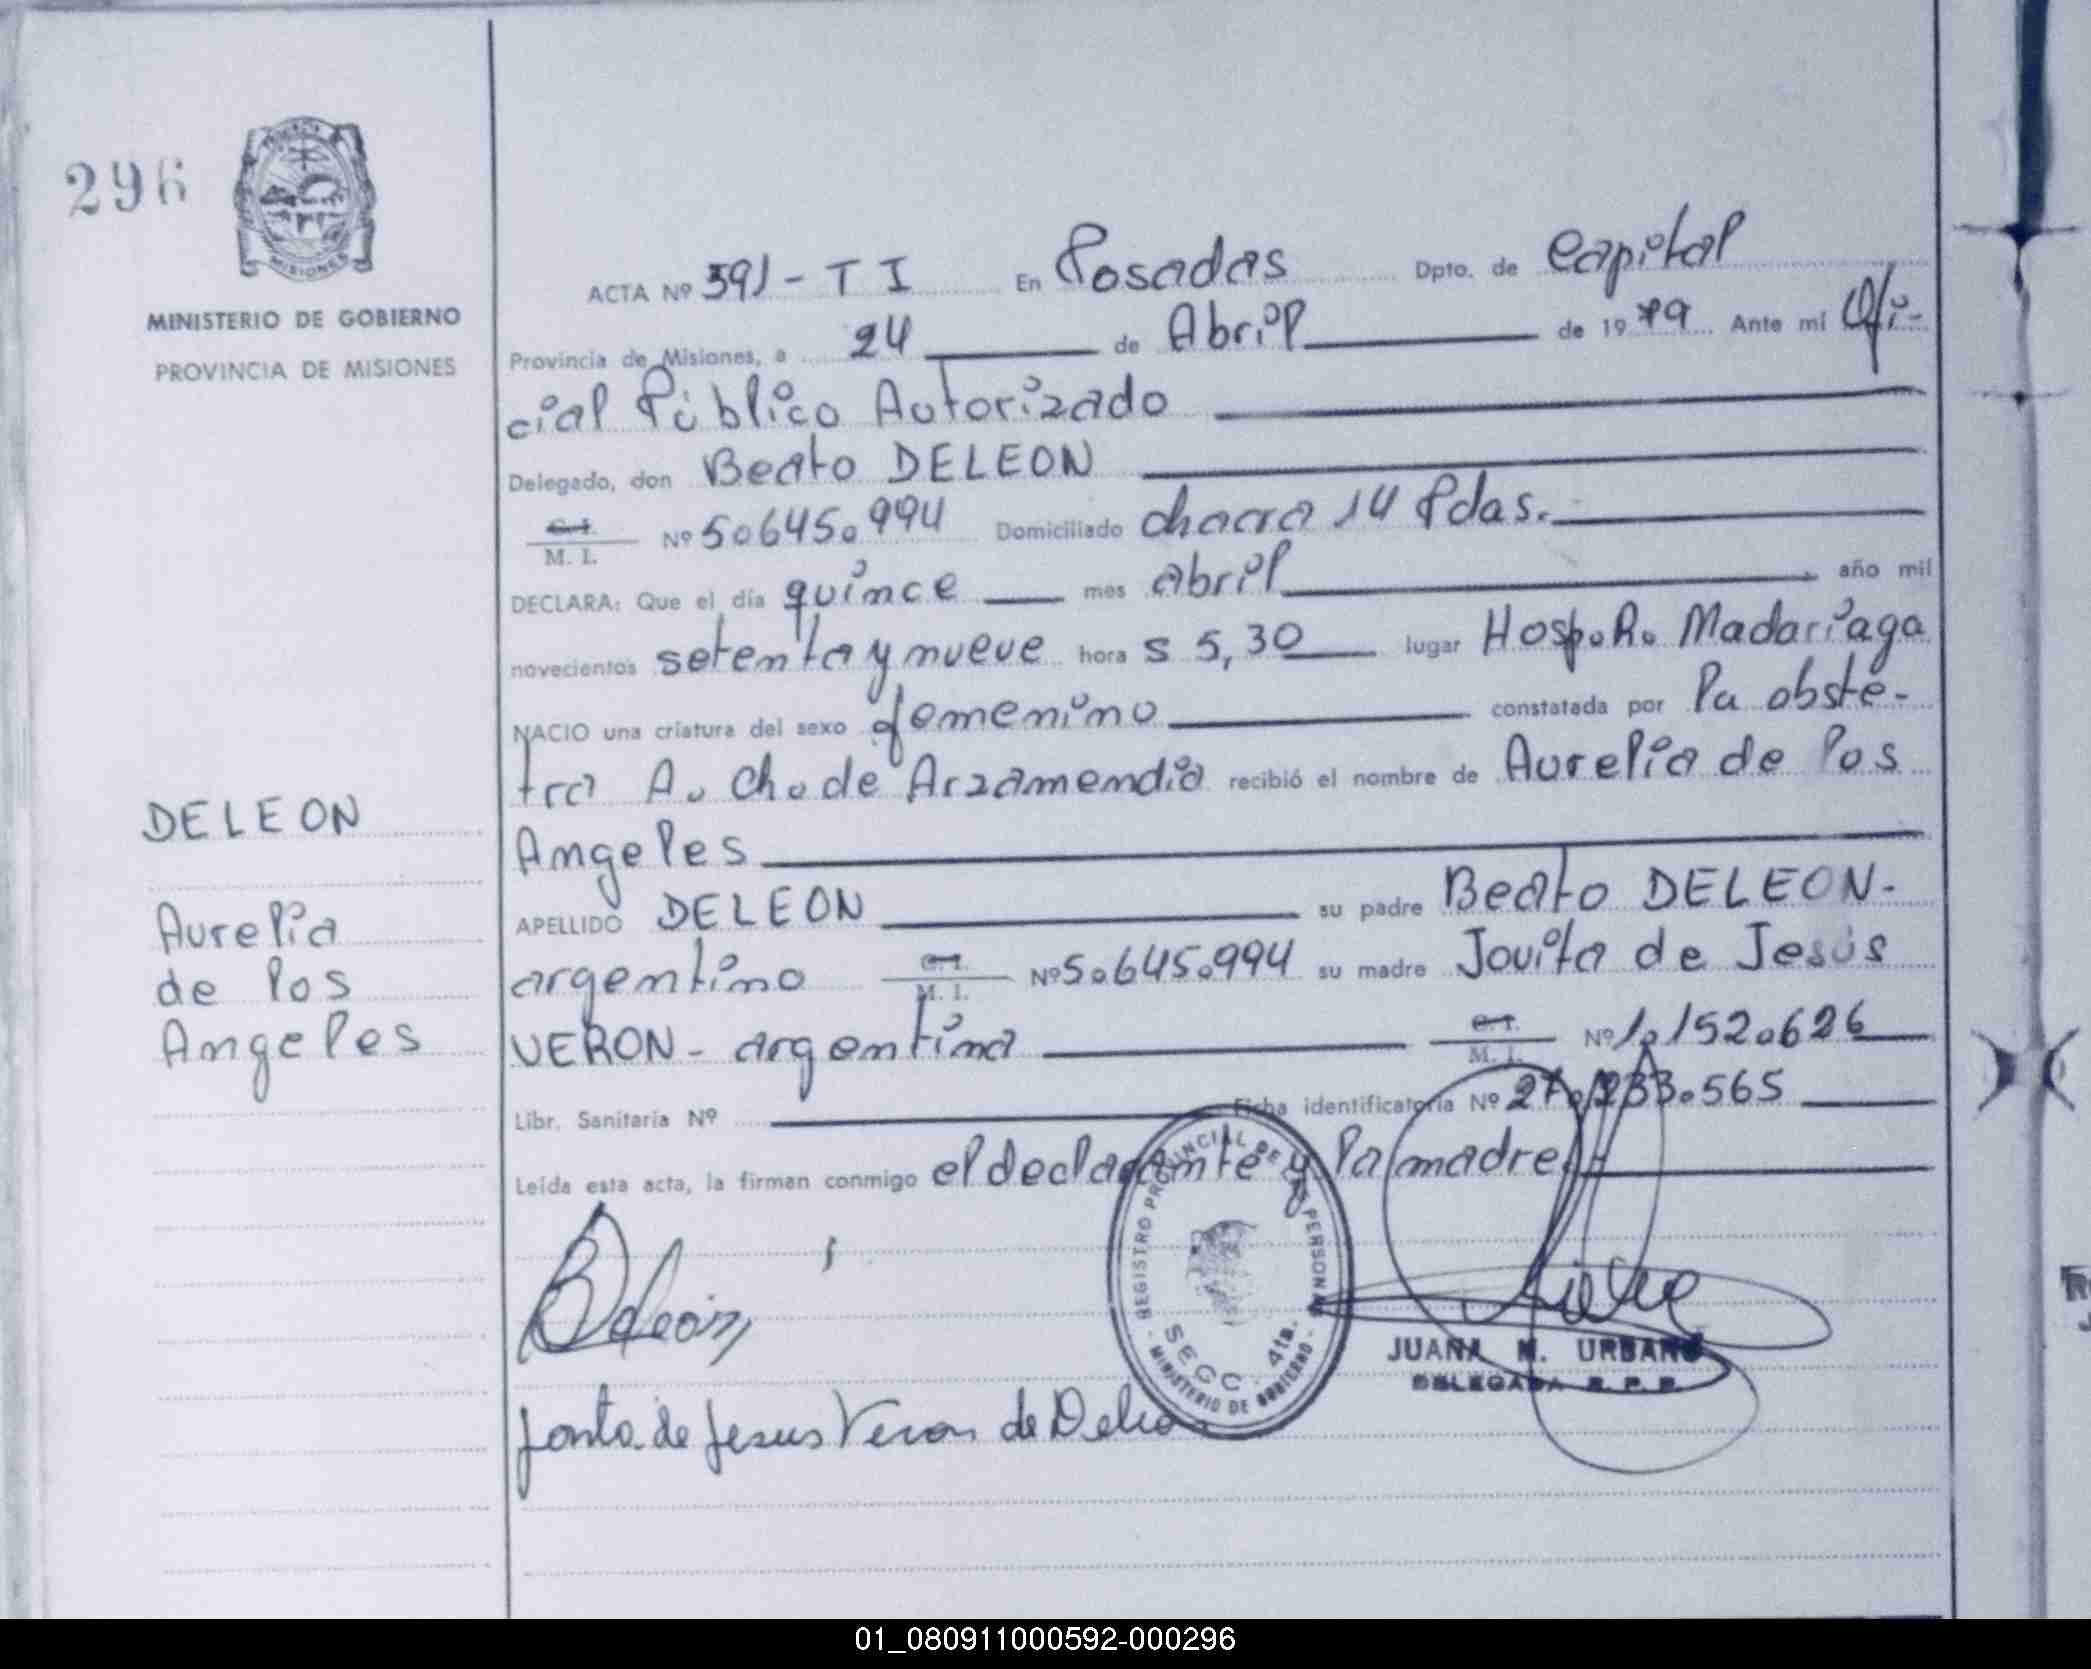 296
MISIONES
MINISTERIO DE GOBIERNO
PROVINCIA DE MISIONES
ACTA Nº 591 - T I En Posadas Dpto. de Capital
Provincia de Misiones, a 24 de Abril de 1979 Ante mí Ofi-
cial Público Autorizado
Delegado, don Beato DELEON
C. I.
M. I. Nº 5.645.994 Domiciliado chacra 14 Pdas.
DECLARA: Que el día quince mes abril año mil
novecientos setenta y nueve hora s 5,30 lugar Hosp. R. Madariaga
NACIO una criatura del sexo femenino constatada por la obste-
tra A. Ch. de Arzamendia recibió el nombre de Aurelia de los
Angeles
APELLIDO DELEON su padre Beato DELEON-
argentino C. I. M. I. Nº 5.645.994 su madre Jovita de Jesús
VERON - argentina C. I. M. I. Nº 1.152.626
Libr. Sanitaria Nº Ficha identificatoria Nº 27.233.565
Leída esta acta, la firman conmigo el declarante y la madre
DELEON
Aurelia
de los
Angeles
BDeleón
REGISTRO PROVINCIAL DE LAS PERSONAS
SECC. 4ta.
MINISTERIO DE GOBIERNO
JUANA N. URBANO
DELEGADA R. P. P.
Jovita de Jesus Veron de Deleon
01_080911000592-000296